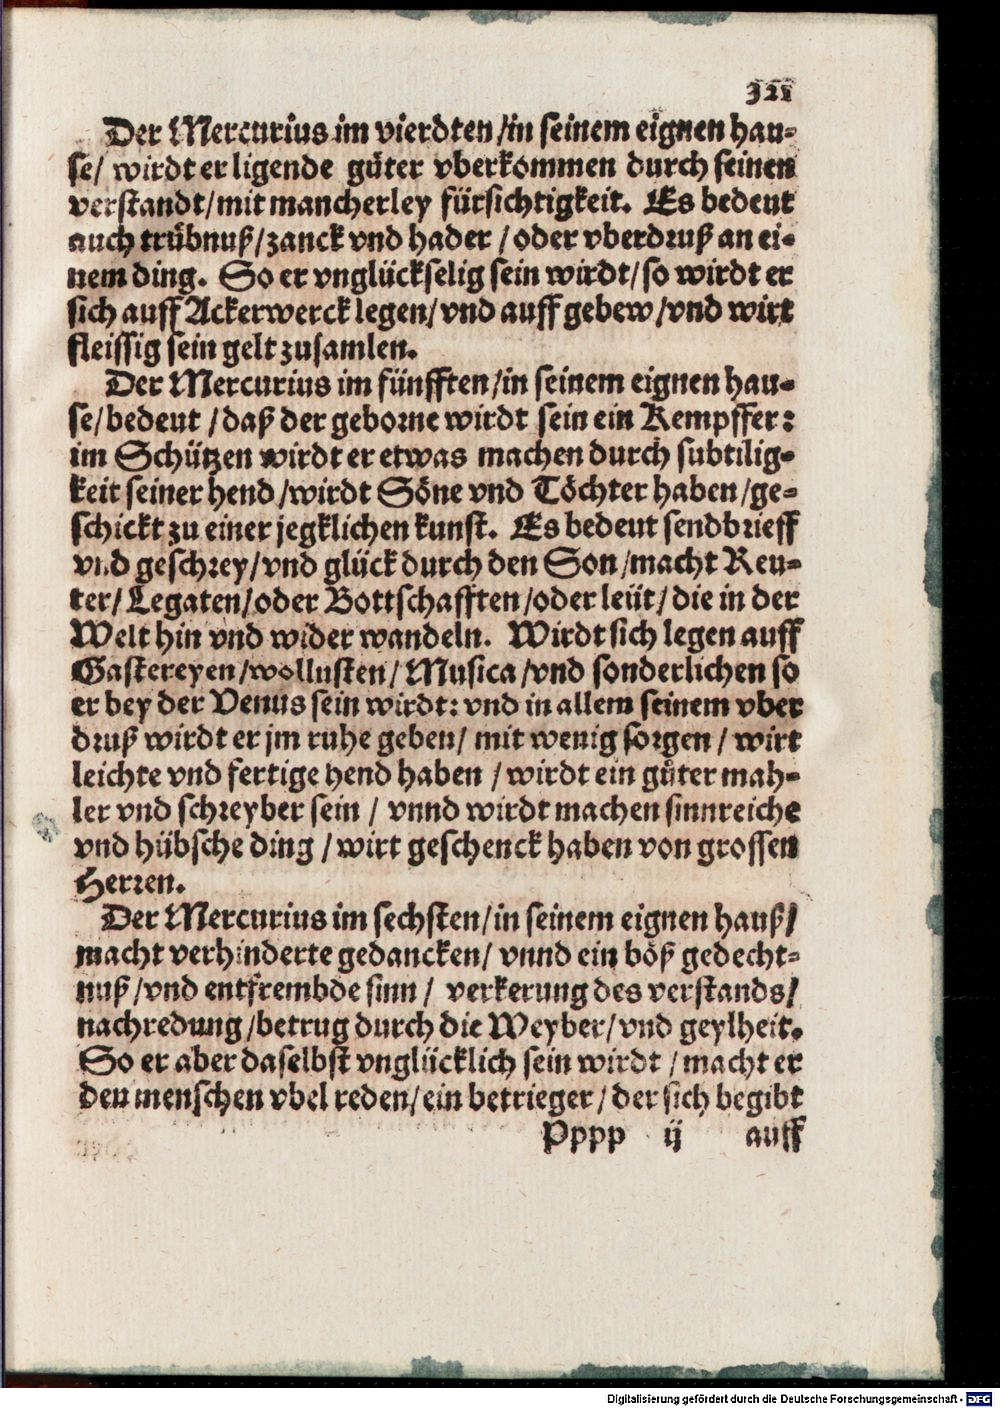 321
Der Mercurius im vierdten/in seinem eignen hau-
se/ wirdt er ligende güter vberkommen durch seinen
verstandt/mit mancherley fürsichtigkeit. Es bedeut
auch trübnuß/zanck vnd hader/oder vberdruß an ei-
nem ding. So er vnglückselig sein wirdt/so wirdt er
sich auff Ackerwerck legen/vnd auff gebew/vnd wirt
fleissig sein gelt zusamlen.
Der Mercurius im fünfften/in seinem eignen hau-
se/bedeut/daß der geborne wirdt sein ein Kempffer:
im Schützen wirdt er etwas machen durch subtilig-
keit seiner hend/wirdt Söne vnd Töchter haben/ge-
schickt zu einer jegklichen kunst. Es bedeut sendbrieff
vnd geschrey/vnd glück durch den Son/macht Reu-
ter/Legaten/oder Bottschafften/oder leüt/die in der
Welt hin vnd wider wandeln. Wirdt sich legen auff
Gastereyen/wollusten/Musica/vnd sonderlichen so
er bey der Venus sein wirdt: vnd in allem seinem vber
druß wirdt er jm ruhe geben/ mit wenig sorgen/wirt
leichte vnd fertige hend haben/wirdt ein guter mah-
ler vnd schreyber sein/ vnnd wirdt machen sinnreiche
vnd hübsche ding/wirt geschenck haben von grossen
Herren.
Der Mercurius im sechsten/in seinem eignen hauß/
macht verhinderte gedancken/vnnd ein böß gedecht-
nuß/vnd entfrembde sinn/ verkerung des verstands/
nachredung/betrug durch die Weyber/vnd geylheit.
So er aber daselbst vnglücklich sein wirdt/macht er
den menschen vbel reden/ein betrieger/der sich begibt
Pppp ij auff
Digitalisierung gefördert durch die Deutsche Forschungsgemeinschaft - DFG